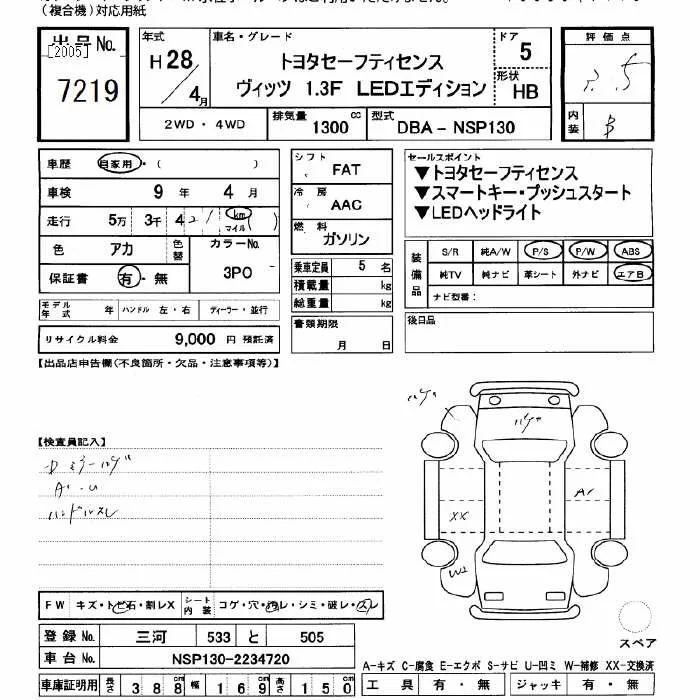 （複合機）対応用紙
出品No.
[2005]
7219
年式
H 28
4月
車名・グレード
トヨタセーフティセンス
ヴィッツ 1.3F LEDエディション
ドア
5
形状
HB
2WD・4WD
排気量
1300 cc
型式
DBA－NSP130
評価点
内装
B
車歴
自家用・（　　　）
車検
9 年 4 月
走行
5万 3千 4 2 1
km
マイル
色
アカ
色替
カラーNo.
3P0
保証書
有・無
モデル年式
年
ハンドル 左・右
ディーラー・並行
リサイクル料金
9,000 円 預託済
シフト
FAT
冷房
AAC
燃料
ガソリン
乗車定員
5 名
積載量
kg
総重量
kg
書類期限
月 日
セールスポイント
▼トヨタセーフティセンス
▼スマートキー・プッシュスタート
▼LEDヘッドライト
装備品
S/R
純A/W
P/S
P/W
ABS
純TV
純ナビ
革シート
外ナビ
エアB
ナビ型番：
後日品
【出品店申告欄（不良箇所・欠品・注意事項等）】
【検査員記入】
A・U
ハンドルスレ
ハゲ
ハゲ
A1
XX
W2
FW
キズ・トビ石・割レX
シート内装
コゲ・穴・汚レ・シミ・破レ・スレ
登録No.
三河
533
と
505
車台No.
NSP130-2234720
車庫証明用
長さ
388
幅
169
高さ
150
スペア
A-キズ C-腐食 E-エクボ S-サビ U-凹ミ W-補修 XX-交換済
工具
有・無
ジャッキ
有・無